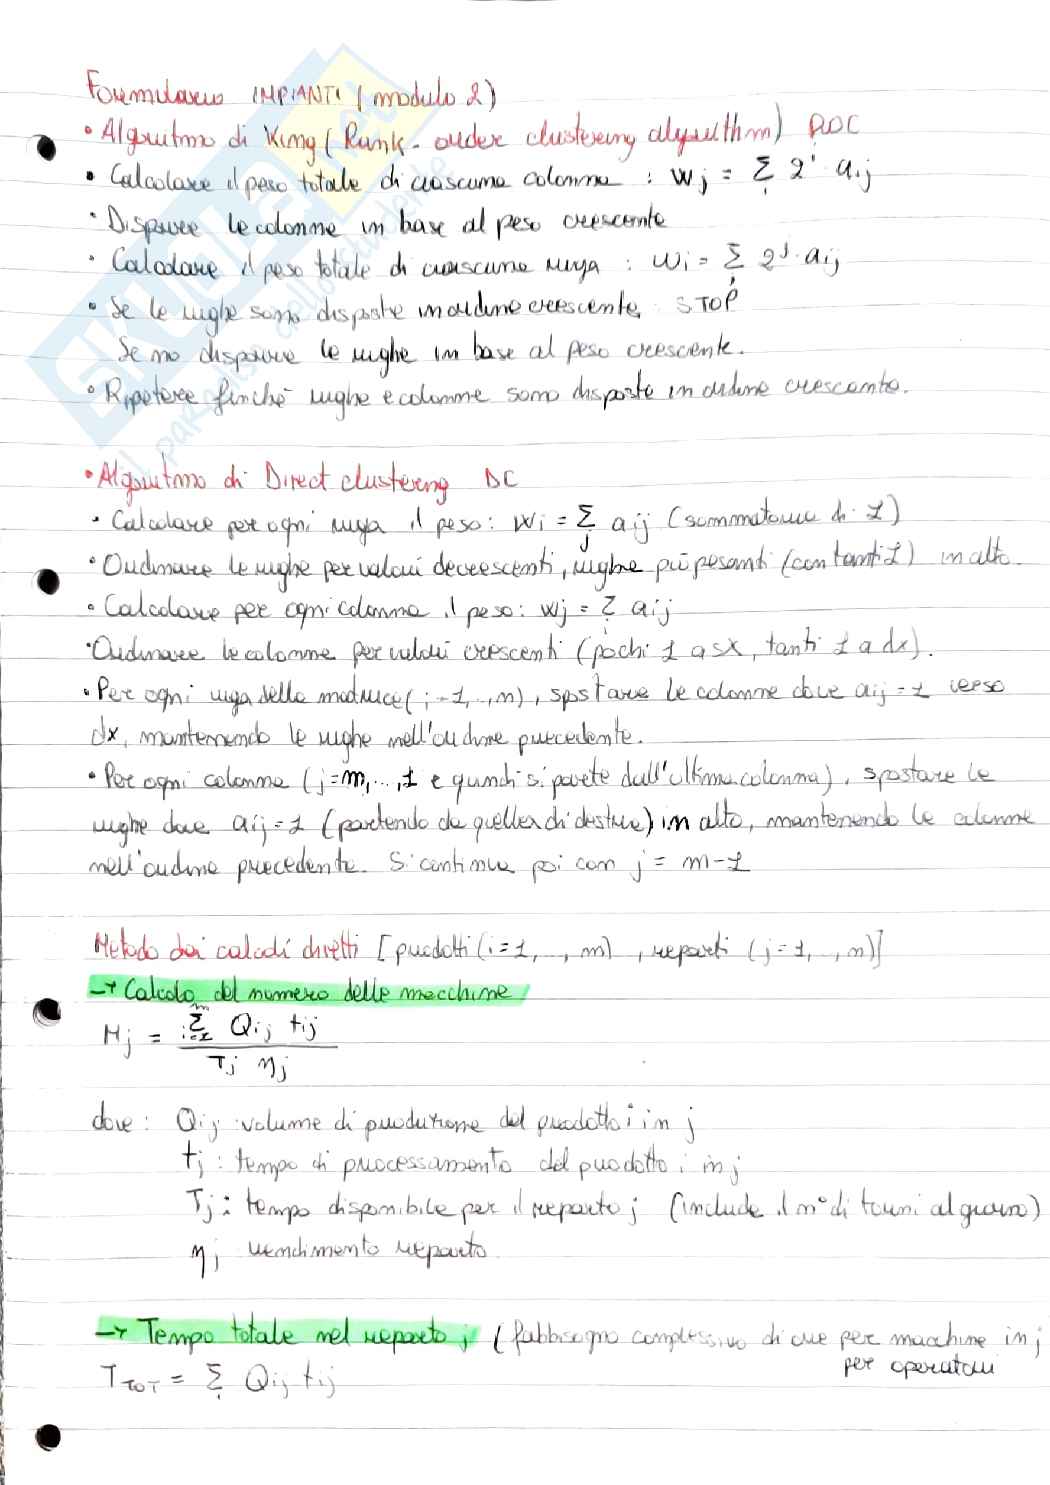 Formulario IMPIANTI (modulo 2)
• Algoritmo di King (Rank-order clustering algorithm) ROC
• Calcolare il peso totale di ciascuna colonna : Wj = Σi 2^i · aij
• Disporre le colonne in base al peso crescente
• Calcolare il peso totale di ciascuna riga : Wi = Σj 2^j · aij
• Se le righe sono disposte in ordine crescente, STOP
Se no disporre le righe in base al peso crescente.
• Ripetere finchè righe e colonne sono disposte in ordine crescente.
• Algoritmo di Direct clustering DC
• Calcolare per ogni riga il peso: Wi = Σj aij (sommatoria di 1)
• Ordinare le righe per valori decrescenti, righe più pesanti (con tanti 1) in alto.
• Calcolare per ogni colonna il peso: Wj = Σi aij
• Ordinare le colonne per valori crescenti (pochi 1 a sx, tanti 1 a dx).
• Per ogni riga della matrice (i=1,..,n), spostare le colonne dove aij=1 verso
dx, mantenendo le righe nell'ordine precedente.
• Per ogni colonna (j=m,..,1 e quindi si parte dall'ultima colonna), spostare le
righe dove aij=1 (partendo da quella di destra) in alto, mantenendo le colonne
nell'ordine precedente. Si continua poi con j = m-1
Metodo dei calcoli diretti [prodotti (i=1,..,m), reparti (j=1,..,n)]
→ Calcolo del numero delle macchine
Mj = Σ_{i=1}^{m} Qij tij / Tj ηj
dove : Qij volume di produzione del prodotto i in j
tj : tempo di processamento del prodotto i in j
Tj : tempo disponibile per il reparto j (include il n° di turni al giorno)
ηj rendimento reparto
→ Tempo totale nel reparto j (fabbisogno complessivo di ore per macchine in j
per operatori
TTOT = Σi Qij tij
SKUOLA.net
il paradiso dello studente